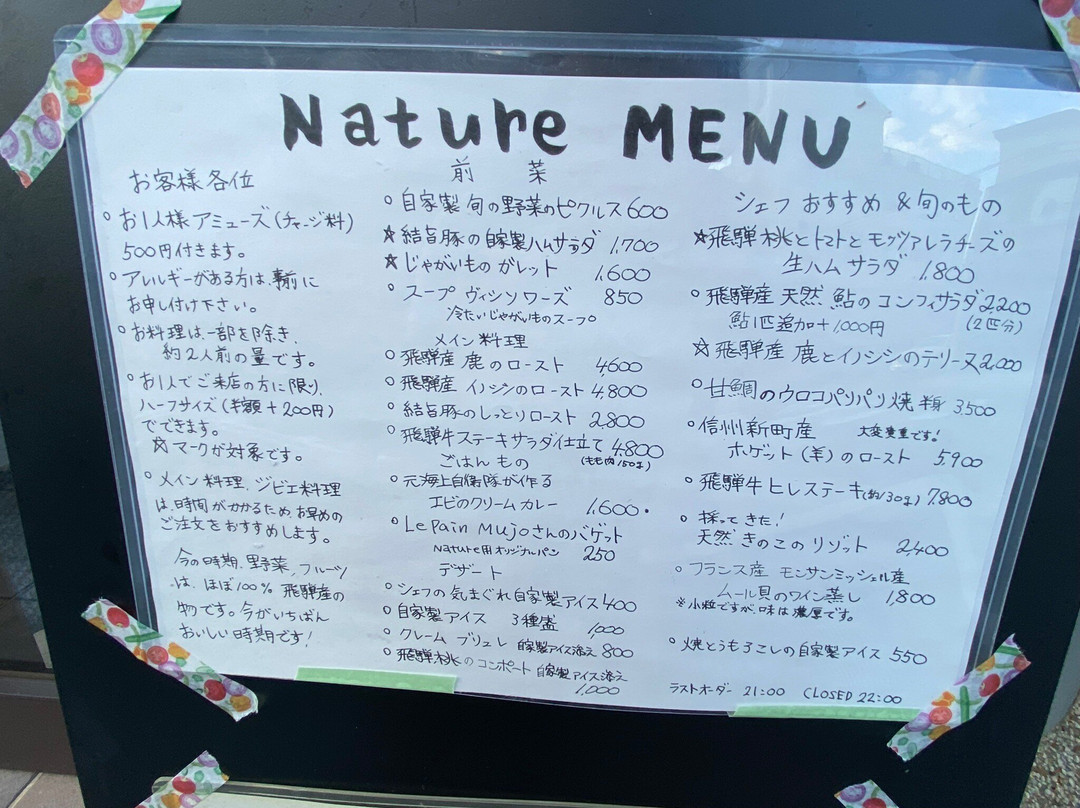 Nature MENU
お客様各位
○お1人様アミューズ(チャージ料)
500円付きます。
○アレルギーがある方は、事前に
お申し付け下さい。
○お料理は、一部を除き、
約2人前の量です。
○お1人でご来店の方に限り、
ハーフサイズ(半額+200円)
でできます。
☆マークが対象です。
○メイン料理、ジビエ料理
は、時間がかかるため、お早めの
ご注文をおすすめします。
今の時期、野菜、フルーツ
は、ほぼ100% 飛騨産の
物です。今がいちばん
おいしい時期です!
前菜
○自家製 旬の野菜のピクルス 600
☆結旨豚の自家製ハムサラダ 1,700
☆じゃがいものガレット 1,600
○スープ ヴィシソワーズ 850
冷たいじゃがいものスープ。
メイン料理
○飛騨産 鹿のロースト 4600
○飛騨産 イノシシのロースト 4,800
○結旨豚のしっとりロースト 2,800
○飛騨牛ステーキサラダ仕立て 4,800
(もも肉150g)
ごはんもの
○元海上自衛隊が作る
エビのクリームカレー 1,600.
○Le Pain Mujoさんのバゲット
Nature用オリジナルパン 250
デザート
○シェフの気まぐれ自家製アイス 400
○自家製アイス 3種盛 1,000
○クレーム ブリュレ 自家製アイス添え 800
○飛騨桃のコンポート 自家製アイス添え
1,000
シェフ おすすめ &旬のもの
☆飛騨桃とトマトとモッツァレラチーズの
生ハムサラダ 1,800
○飛騨産 天然 鮎のコンフィサラダ 2,200
鮎1匹追加+1,000円 (2匹分)
☆飛騨産 鹿とイノシシのテリーヌ 2,000
○甘鯛のウロコパリパリ焼 半身 3,500
○信州新町産 大変貴重です!
ホゲット(羊)のロースト 5,900
○飛騨牛ヒレステーキ(約130g) 7,800
○採ってきた!
天然きのこのリゾット 2,400
○フランス産 モンサンミッシェル産
ムール貝のワイン蒸し 1,800
※小粒ですが、味は濃厚です。
○焼とうもろこしの自家製アイス 550
ラストオーダー 21:00 CLOSED 22:00